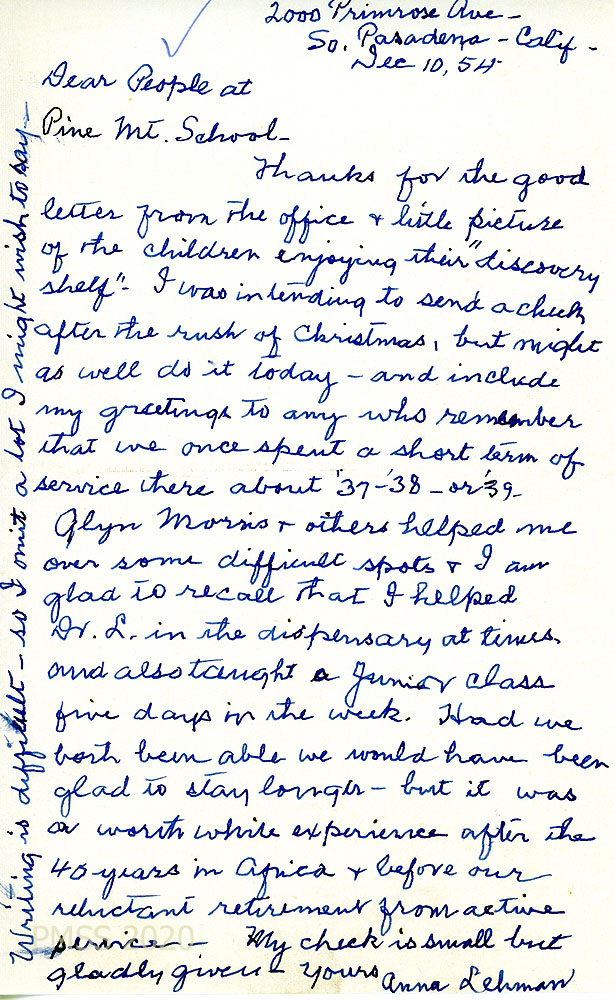 2000 Primrose Ave -
So. Pasadena - Calif -
Dec 10, 54
Dear People at
Pine Mt. School -
Thanks for the good
letter from the office & little picture
of the children enjoying their "discovery
shelf" - I was intending to send a check
after the rush of Christmas, but might
as well do it today - and include
my greetings to any who remember
that we once spent a short term of
service there about '37-'38 - or '39 -
Glyn Morris & others helped me
over some difficult spots & I am
glad to recall that I helped
Dr. L. in the dispensary at times
and also taught a Junior class
five days in the week. Had we
both been able we would have been
glad to stay longer - but it was
a worth while experience after the
40 years in Africa & before our
reluctant retirement from active
service - My check is small but
gladly given - Yours Anna Lehman
Writing is difficult - so I omit a lot I might wish to say -
PMSS 2020